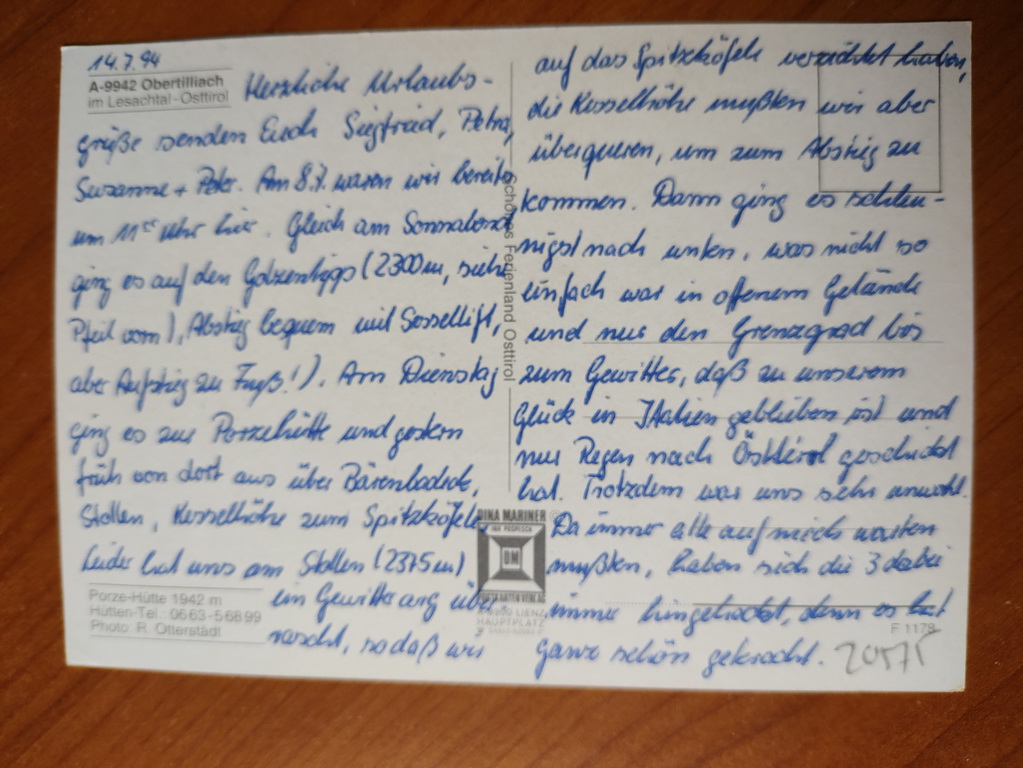 14.7.94
A-9942 Obertilliach
im Lesachtal-Osttirol
Herzliche Urlaubs-
grüße senden Euch Siegfried, Petra,
Susanne + Peter. Am 8.7. waren wir bereits
um 11 Uhr hier. Gleich am Sonnabend
ging es auf den Golzentipp (2300m, siehe
Pfeil vorn), Abstieg bequem mit Sessellift,
aber Aufstieg zu Fuß!). Am Dienstag
ging es zur Porzehütte und gestern
früh von dort aus über Bärenbadeck,
Stollen, Kesselhöhe zum Spitzköfele
Leider hat uns am Stollen (2375m)
ein Gewitter arg über-
rascht, sodaß wir
Porze-Hütte 1942 m
Hütten-Tel.: 0663-56899
Photo: R. Otterstädt
Schönes Ferienland Osttirol
DINA MARINER
DM
POSTKARTENVERLAG
9900 LIENZ
HAUPTPLATZ
auf das Spitzköfele verzichtet haben,
die Kesselhöhe mußten wir aber
überqueren, um zum Abstieg zu
kommen. Dann ging es schleu-
nigst nach unten, was nicht so
einfach war in offenem Gelände
und nur den Grenzgrad bis
zum Gewitter, daß zu unserem
Glück in Italien geblieben ist und
nur Regen nach Osttirol geschickt
hat. Trotzdem war uns sehr unwohl.
Da immer alle auf mich warten
mußten, haben sich die 3 dabei
immer hingehockt, denn es hat
ganz schön gekracht.
F 1178